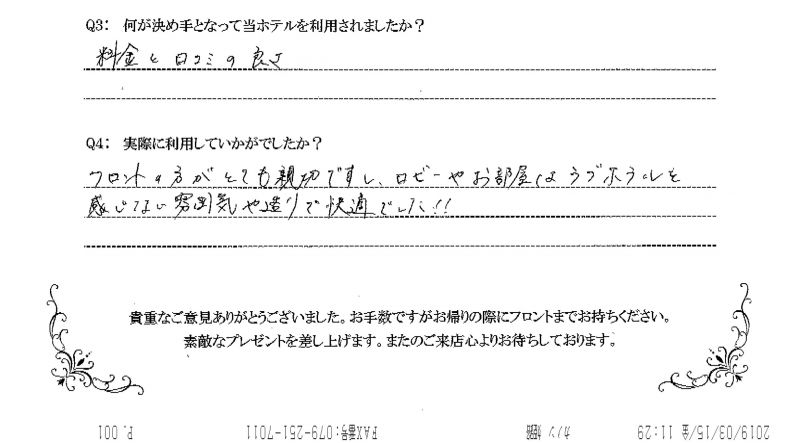 Q3： 何が決め手となって当ホテルを利用されましたか？
料金と口コミの良さ
Q4： 実際に利用していかがでしたか？
フロントの方がとても親切ですし、ロビーやお部屋はラブホテルを
感じない雰囲気や造りで快適でした!!
貴重なご意見ありがとうございました。お手数ですがお帰りの際にフロントまでお持ちください。
素敵なプレゼントを差し上げます。またのご来店心よりお待ちしております。
2019/03/15/金 11:29 カノン 姫路 FAX番号:079-251-7011 P. 001